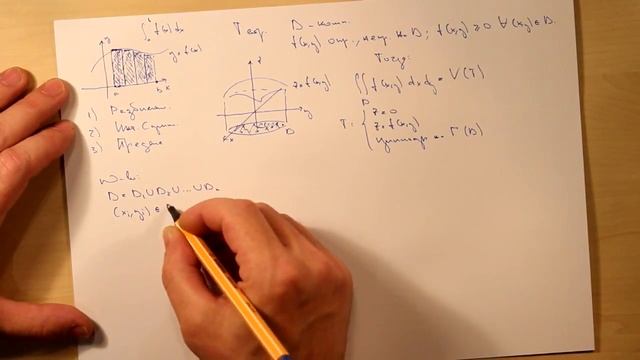 ∫ₐᵇ f(x) dx
y
y=f(x)
a
b
x
1) Разбиение
2) Инт. Сумма
3) Предел
Теор. D - комп.
f(x,y) опр., непр. на D; f(x,y) ≥ 0 ∀(x,y)∈D.
Тогда
z
z=f(x,y)
y
x
D
∬ f(x,y) dx dy = V(T)
D
T: { z=0
z=f(x,y)
цилиндр на Γ(D)
D = D₁∪D₂∪...∪Dₙ
(xᵢ,yᵢ) ∈